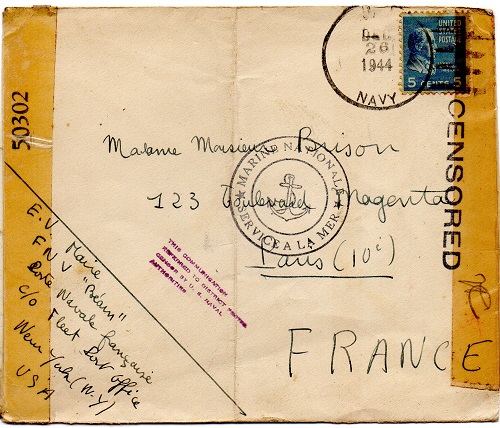 DEC
26
1944
NAVY
UNITED
STATES
POSTAGE
5 CENTS 5
50302
CENSORED
Madame Monsieur Brison
MARINE NATIONALE
SERVICE A LA MER
123 Boulevard Magenta
Paris (10e)
FRANCE
THIS COMMUNICATION
REFERRED TO DISTRICT POSTAL
CENSOR BY U. S. NAVAL
AUTHORITIES
E.V. Marie
FNV "Béarn"
Poste Navale française
c/o Fleet Post Office
New York (N.Y)
USA